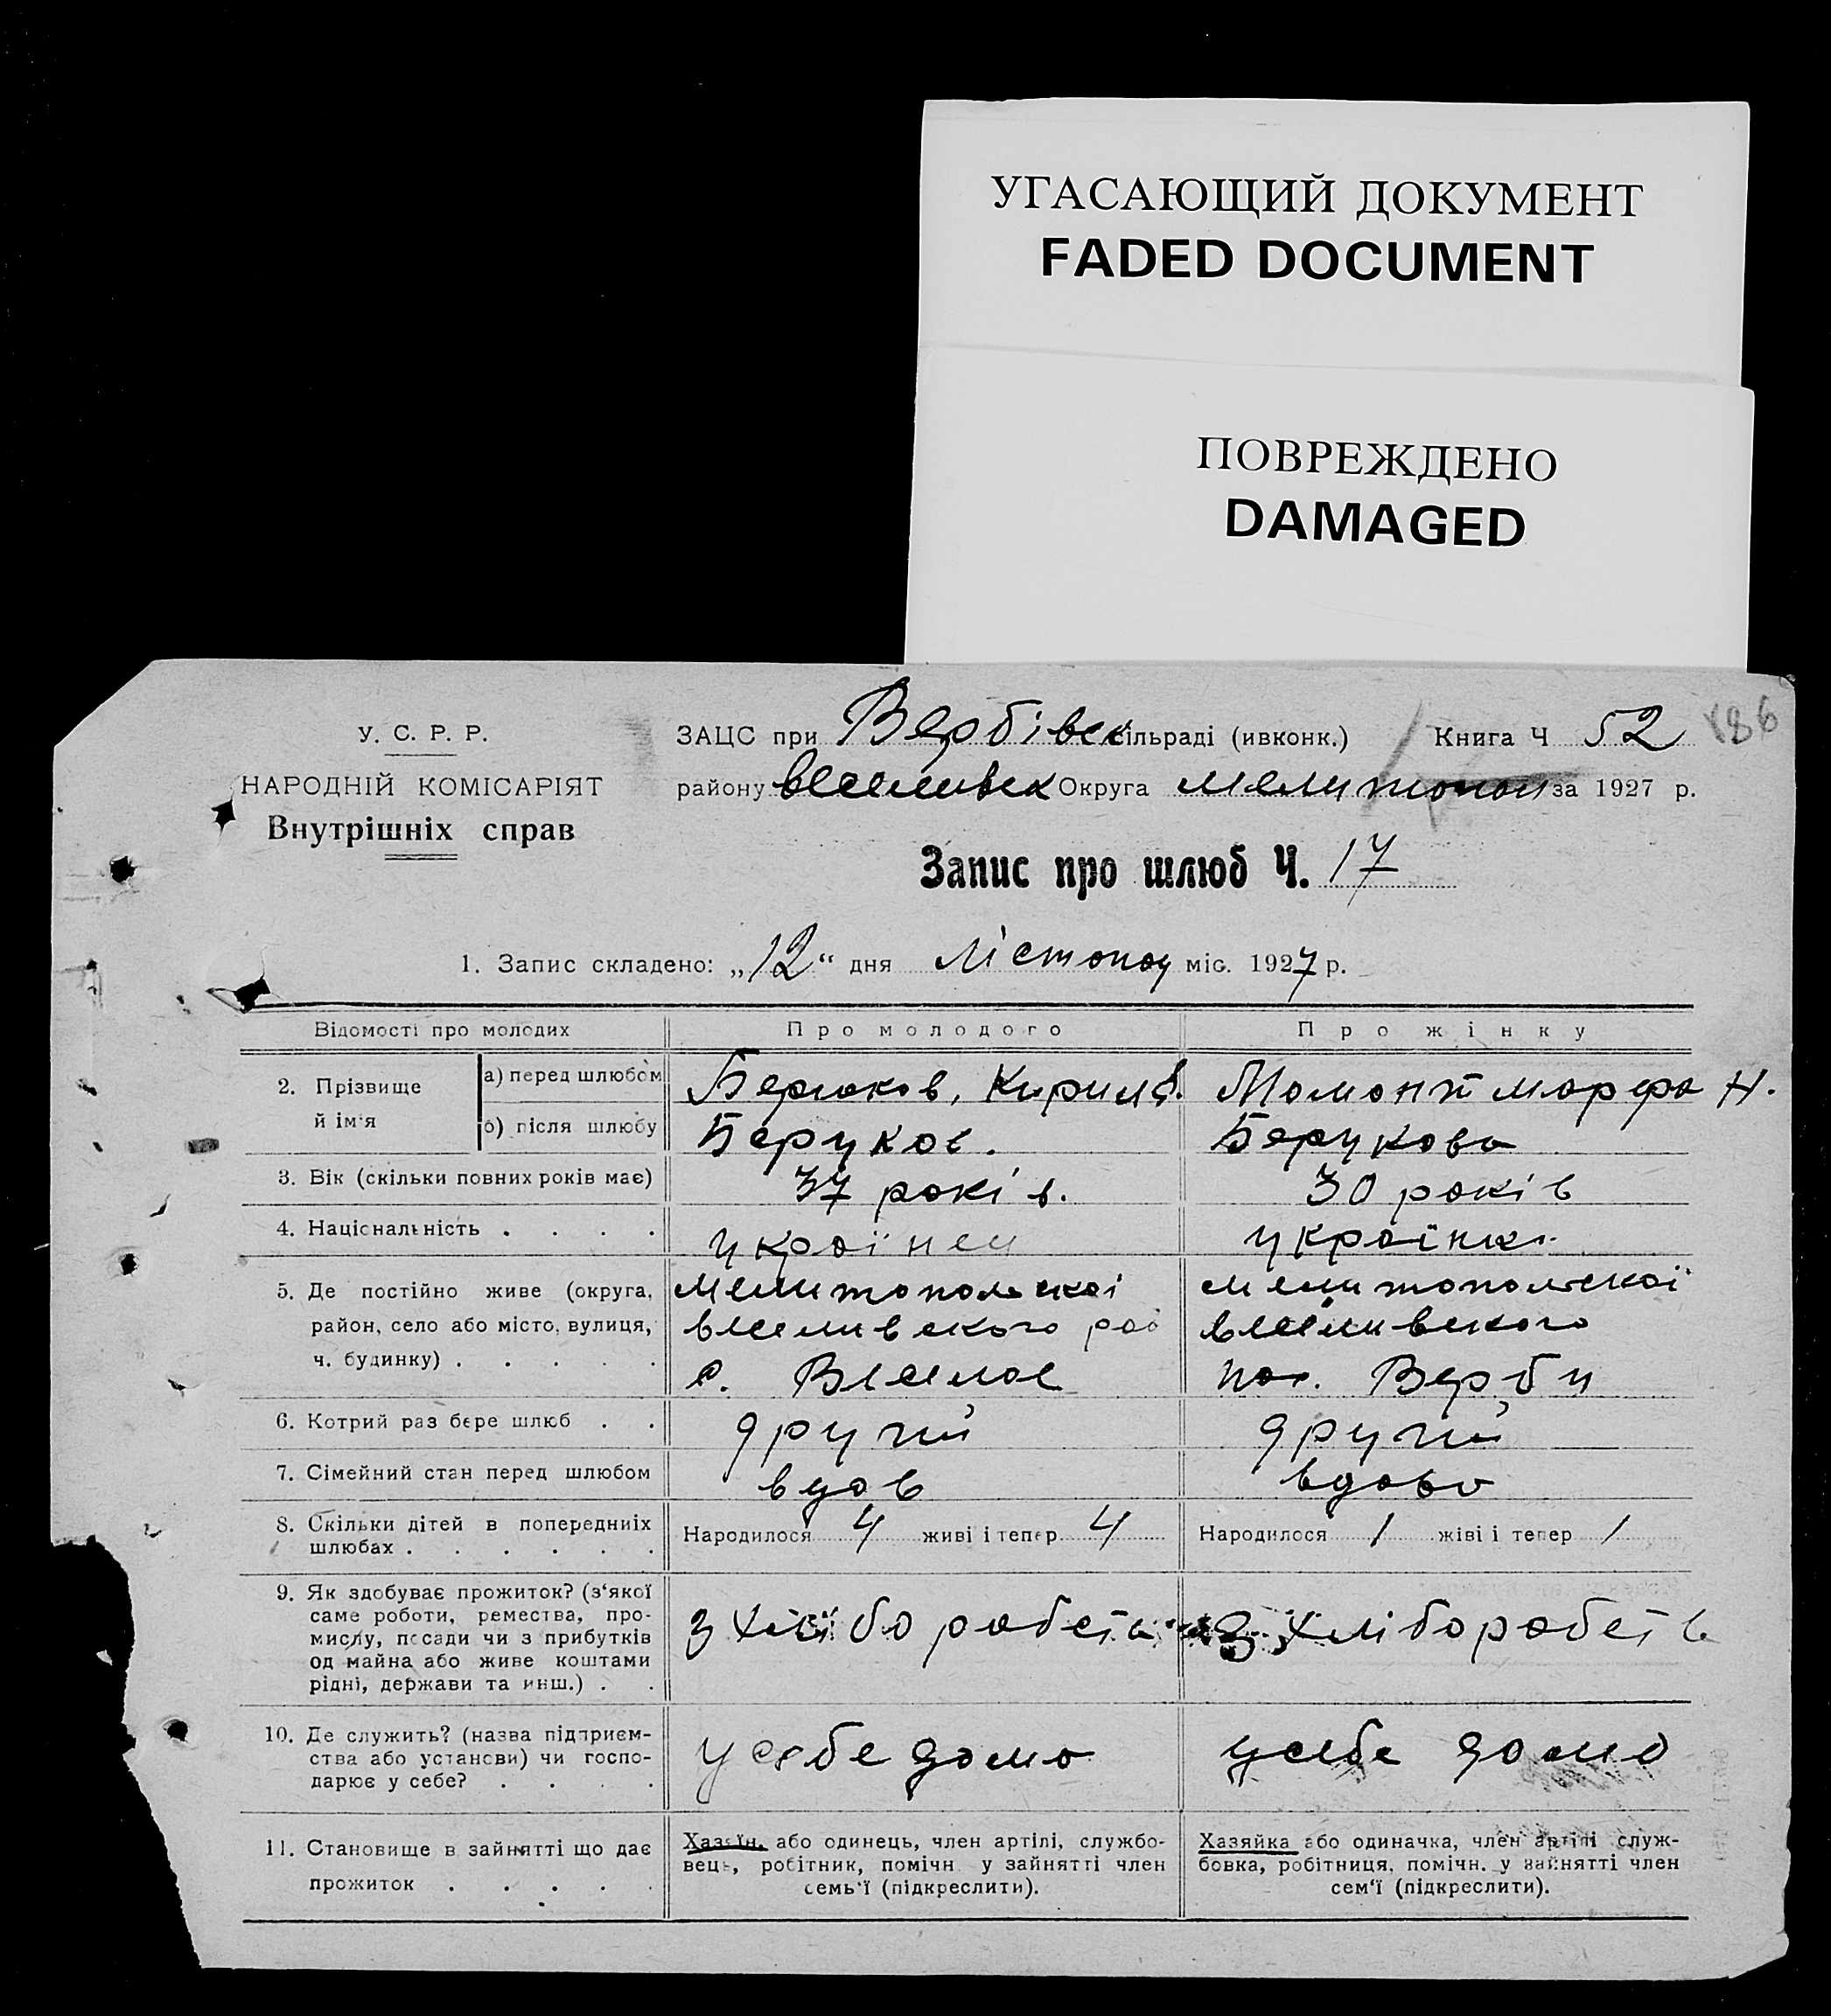 УГАСАЮЩИЙ ДОКУМЕНТ
FADED DOCUMENT
ПОВРЕЖДЕНО
DAMAGED
У. С. Р. Р.
НАРОДНІЙ КОМІСАРІЯТ
Внутрішніх справ
ЗАЦС при Вербівск сільраді (ивконк.) Книга Ч 52 186
району веселивск Округа мелитопол за 1927 р.
Запис про шлюб Ч. 17
1. Запис складено: „12“ дня лістопад міс. 1927 р.
Відомості про молодих Про молодого Про жінку
2. Прізвище й ім'я
а) перед шлюбом Берюков, Кирило. Момонт марфа Н.
б) після шлюбу Беруков. Берукова
3. Вік (скільки повних років має) 37 років. 30 років
4. Національність . . . . українец українка.
5. Де постійно живе (округа, мелитопольскоі мелитопольскої
район, село або місто, вулиця, веселивского рай веселивского
ч. будинку) . . . . . с. Веселое пос. Верби
6. Котрий раз бере шлюб . . другий другий
7. Сімейний стан перед шлюбом вдов вдова
8. Скільки дітей в попередниіх Народилося 4 живі і тепер 4 Народилося 1 жіві і тепер 1
шлюбах . . . . . .
9. Як здобуває прожиток? (з'якої
саме роботи, ремества, про-
мислу, посади чи з прибутків з хлібороб з хлібороб
од майна або живе коштами
рідні, держави та инш.) . .
10. Де служить? (назва підприєм-
ства або установи) чи госпо- у себе дома у себе дома
дарює у себе? . . . .
11. Становище в зайнятті що дає Хазяїн, або одинець, член артілі, службо- Хазяйка або одиначка, член артілі служ-
прожиток . . . . . вець, робітник, помічн. у зайнятті член бовка, робітниця, помічн. у зайнятті член
семь'ї (підкреслити). сем'ї (підкреслити).